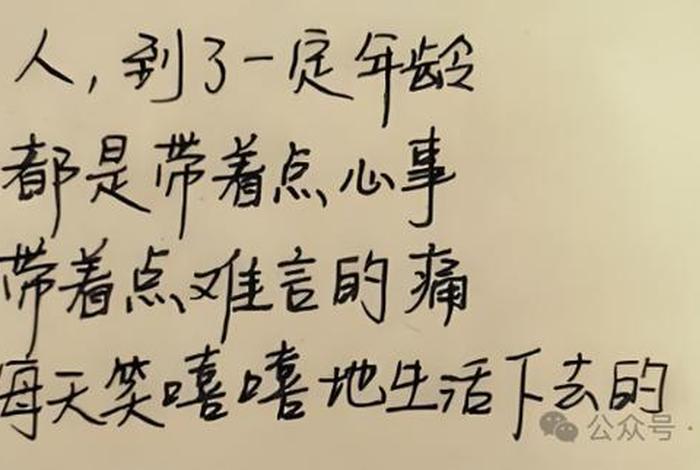 人，到了一定年龄
都是带着点心事
带着点难言的痛
每天笑嘻嘻地生活下去的
公众号·